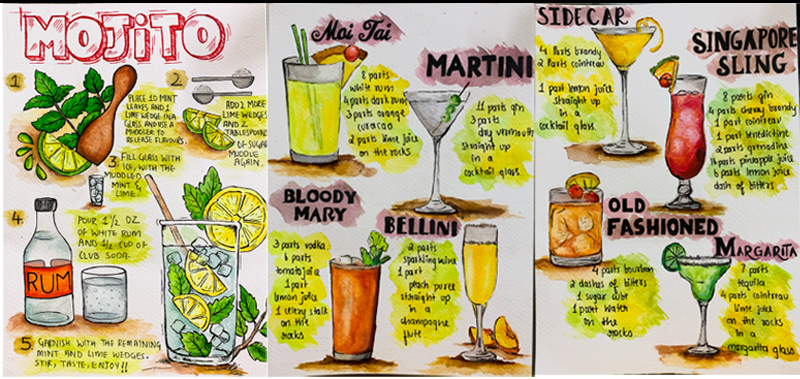 MOJITO
1
PLACE 10 MINT
LEAVES AND 1
LIME WEDGE IN A
GLASS AND USE A
MUDDLER TO
RELEASE FLAVOURS.
2.
ADD 2 MORE
LIME WEDGES
AND 2
TABLESPOONS
OF SUGAR
MUDDLE
AGAIN.
3.
FILL GLASS WITH
ICE, WITH THE
MUDDLED
MINT &
LIME.
4.
POUR 1 1/2 OZ
OF WHITE RUM
AND 1/2 CUP OF
CLUB SODA.
RUM
5.
GARNISH WITH THE REMAINING
MINT AND LIME WEDGES.
STIR, TASTE, ENJOY!!
Mai Tai
8 parts
white rum
4 parts dark rum
3 parts orange
curacao
2 parts lime juice
on the rocks
MARTINI
11 parts gin
3 parts
dry vermouth
straight up
in a
cocktail glass
BLOODY
MARY
3 parts vodka
6 parts
tomato juice
1 part
lemon juice
1 celery stalk
on the
rocks
BELLINI
2 parts
sparkling wine
1 part
peach puree
straight up
in a
champagne
flute
SIDECAR
4 Parts brandy
2 Parts cointreau
1 part lemon juice
straight up
in a
cocktail glass.
SINGAPORE
SLING
8 parts gin
4 parts cherry brandy
1 part cointreau
1 part benedictine
2 parts grenadine
parts pineapple juice
6 parts lemon juice
dash of bitters
OLD
FASHIONED
4 parts bourbon
2 dashes of bitters
1 sugar cube
1 part water
on the
rocks
MARGARITA
7 parts
tequila
4 parts cointreau
lime juice
on the rocks
in a
margarita glass